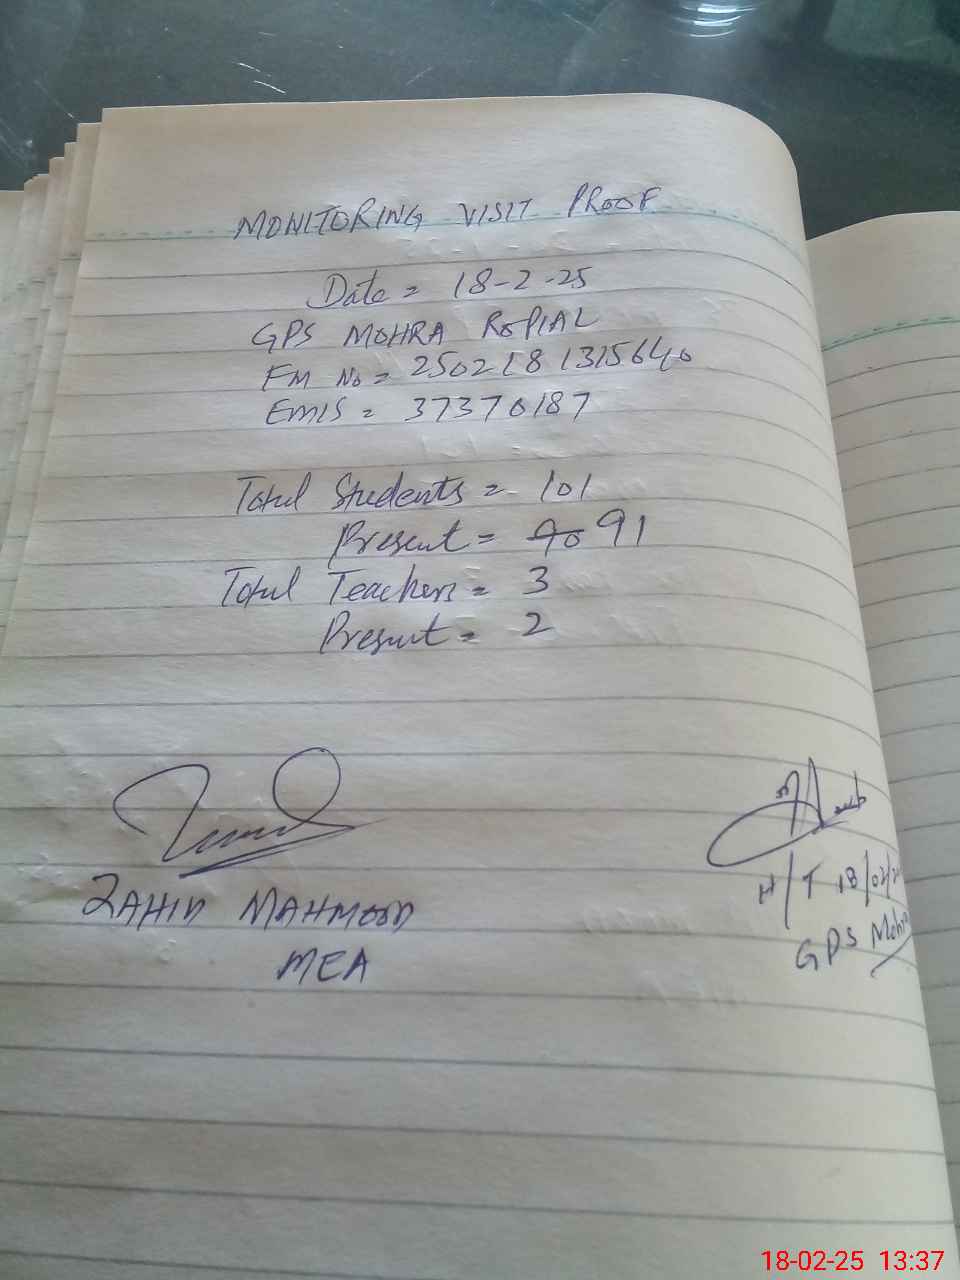 MONITORING VISIT PROOF
Date = 18-2-25
GPS MOHRA ROPIAL
FM No = 250218 1315640
EMIS = 37370187
Total Students = 101
Present = 90 91
Total Teachers = 3
Present = 2
ZAHID MAHMOOD
MEA
H/T 18/02/2
GPS Mohr
18-02-25 13:37